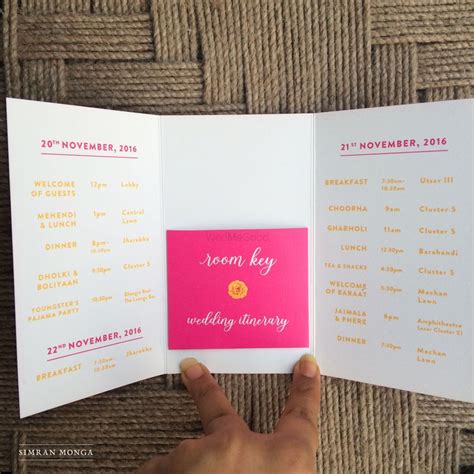 20TH NOVEMBER, 2016
WELCOME OF GUESTS 12pm Lobby
MEHENDI & LUNCH 1pm Central Lawn
DINNER 8pm- Jharokha
DHOLKI & BOLIYAAN 9:30pm Cluster S
YOUNGSTER'S PAJAMA PARTY 10:30pm The Lounge Bar
22ND NOVEMBER, 2016
BREAKFAST 7:30am- Jharokha
WedMeGood
room key
wedding itinerary
21ST NOVEMBER, 2016
BREAKFAST 7:30am- 10:30am Utsav III
CHOORNA 9am Cluster S
GHAROLI 11am Cluster S
LUNCH 12:30pm Barahandi
TEA & SNACKS 4:30pm Cluster S
WELCOME OF BARAAT Machan Lawn
JAIMALA & PHERE Amphitheatre
DINNER 7:30pm Machan Lawn
SIMRAN MONGA